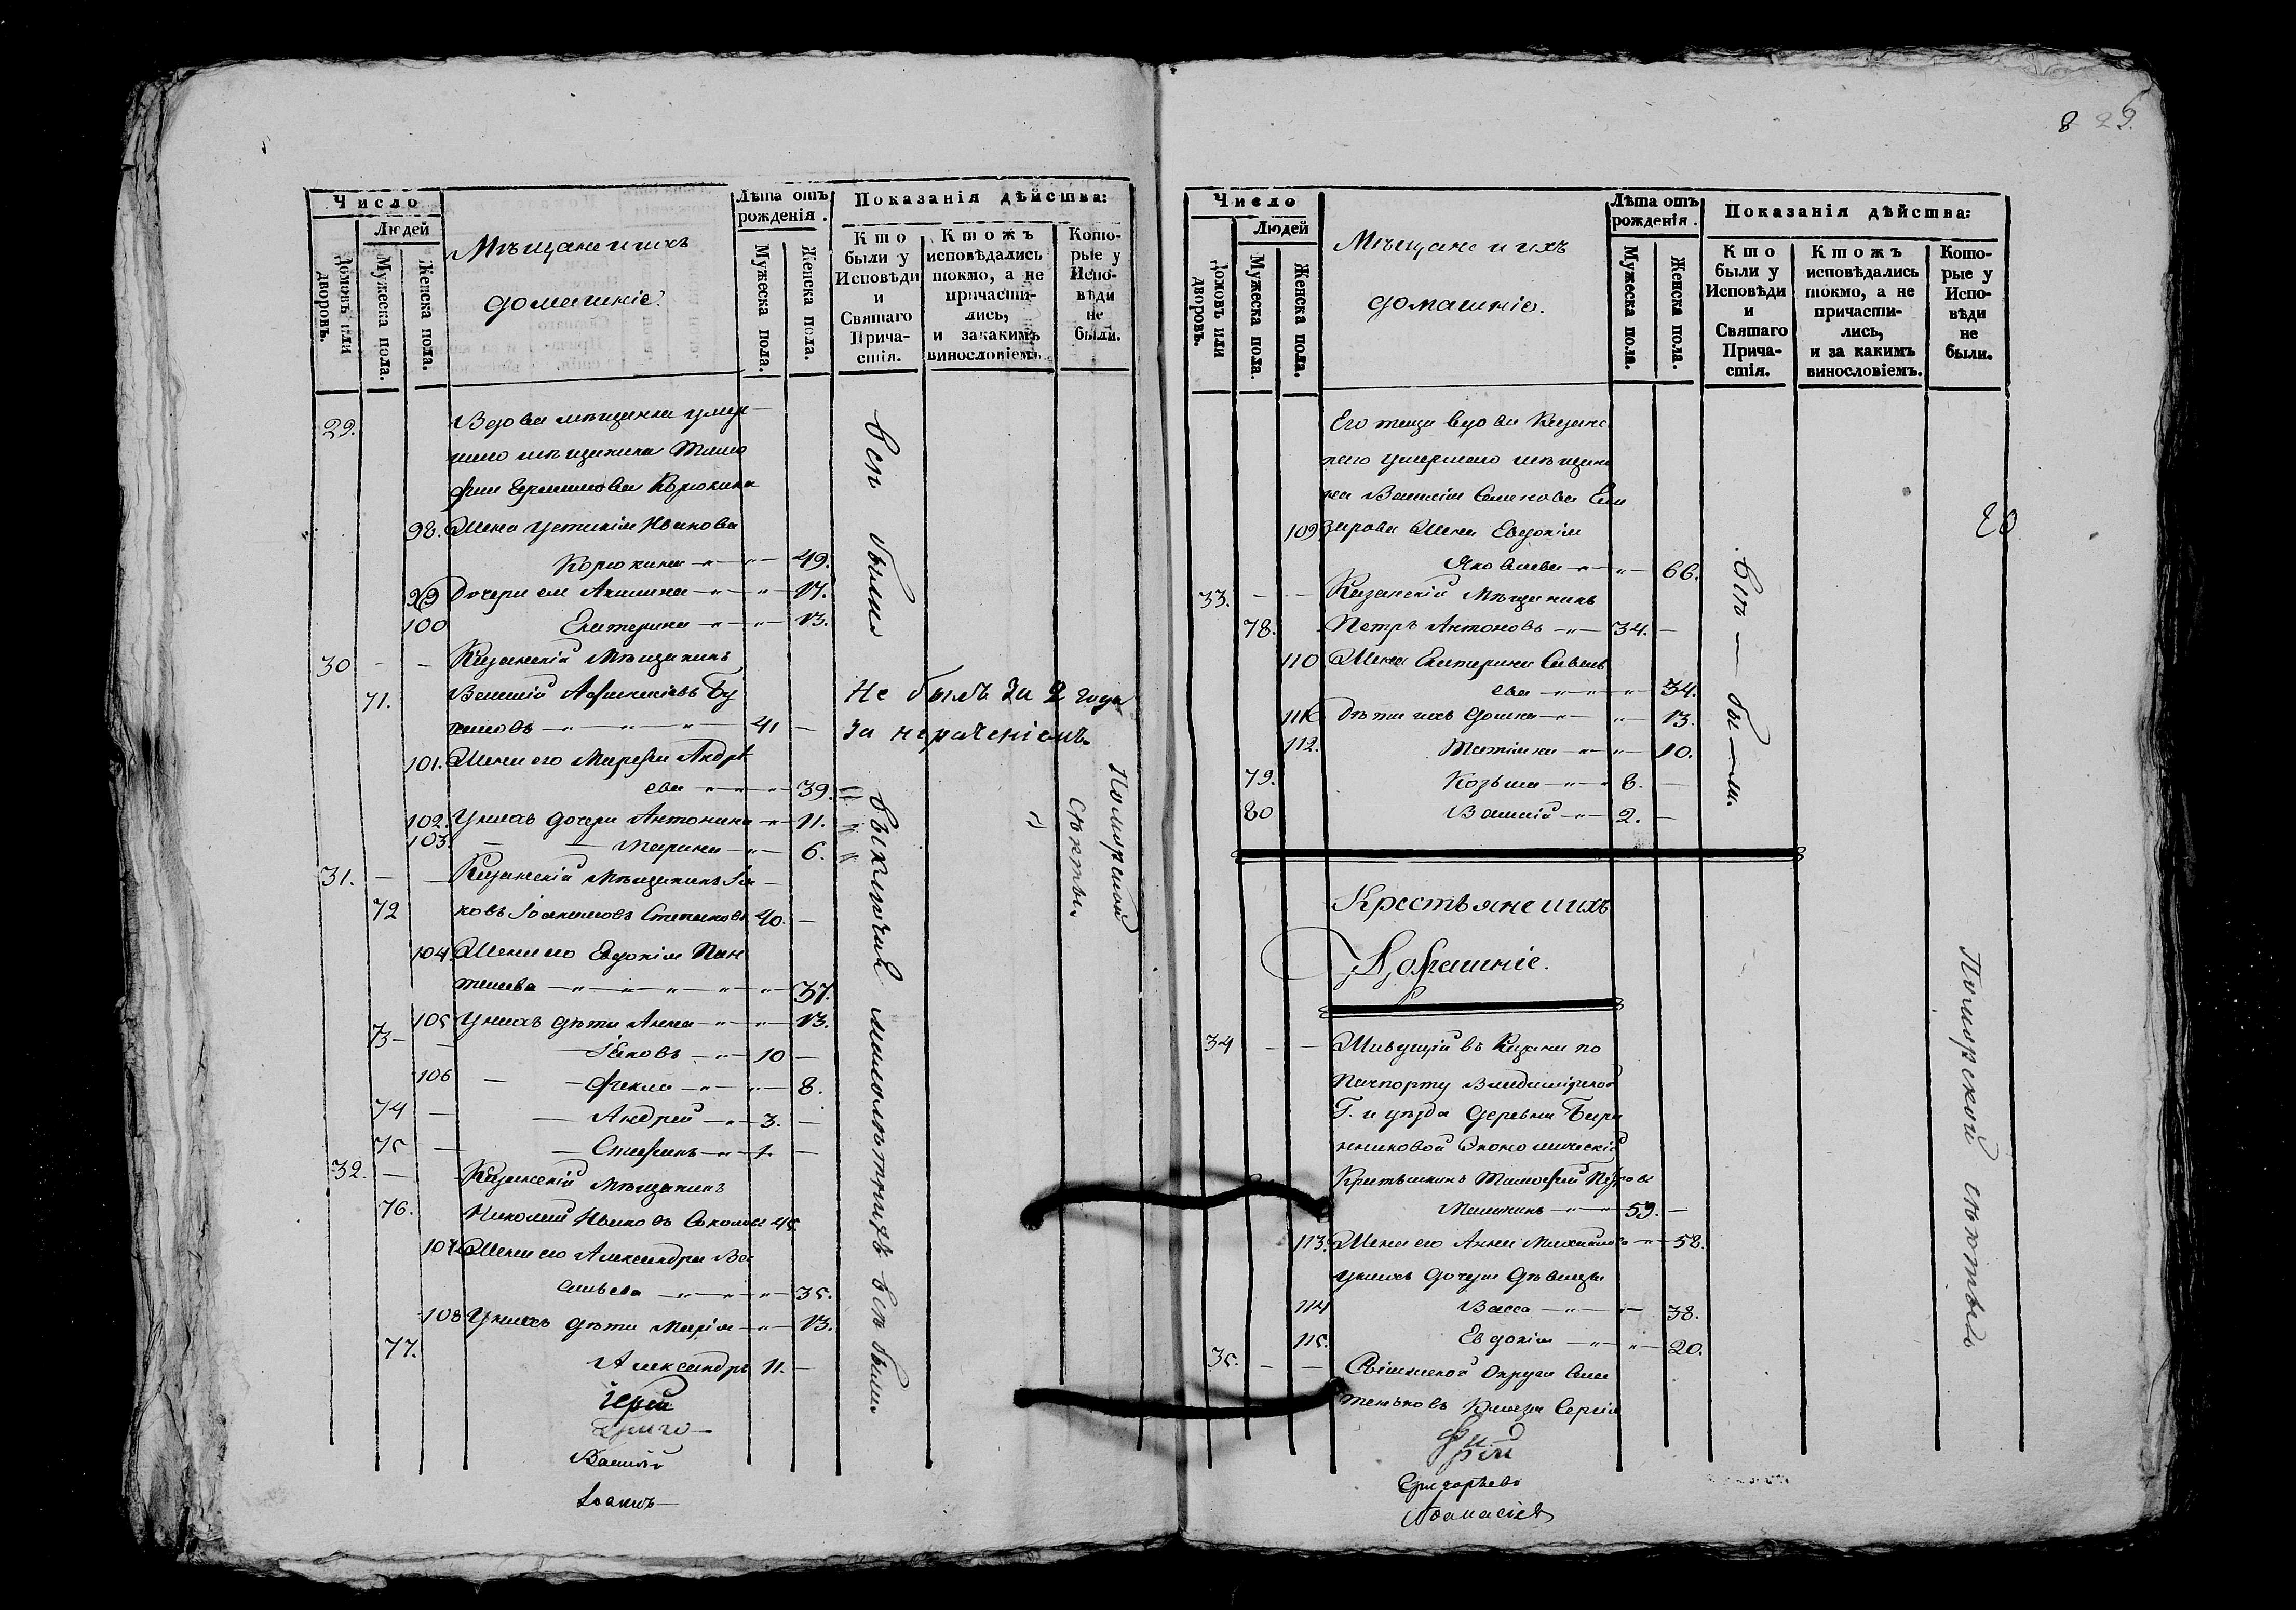 Число
Людей
Домовъ или дворовъ.
Мужеска пола.
Женска пола.
Мѣщане и ихъ
домашніе.
Лѣта отъ рожденія.
Мужеска пола.
Женска пола.
Показанія дѣйства:
Кто были у Исповѣди и Святаго Причастія.
Ктожъ исповѣдались токмо, а не причастились, и закакимъ винословіемъ.
Которые у Исповѣди не были.
29. Вдова мѣщанка умер
шаго мѣщанина Тимо
фея Ермилова Корюкина
98. Жена Устинія Иванова
Корюкина 49.
99 Дочери ея Акилина 17.
100 Екатерина 13.
всѣ были
30 Казанскій Мѣщанинъ
71. Василій Афанасіевъ Бу
41
Не былъ за 2 года
за нераченіемъ.
101. Жена его Марфа Андрѣ
ева 39.
102. У нихъ дочери Антонина 11.
103. Марина 6.
31. Казанскій Мѣщанинъ Іа
72 ковъ Іоакимовъ Степановъ 40.
104. Жена его Евдокія Пан
телева 37.
105 У нихъ дѣти Анна 13.
73 Іаковъ 10
106 Фекла 8.
74 Андрей 3.
75 Стефанъ 1.
32. Казанскій Мѣщанинъ
76. Николай Ивановъ Соколовъ 45
107. Жена его Александра Ва
сильева 35.
108 У нихъ дѣти Марія 13.
77. Александръ 11.
выключая малолѣтнихъ всѣ были
Поморской
секты.
Іерей
Василій
Іоаннъ
8 29.
Число
Людей
Домовъ или дворовъ.
Мужеска пола.
Женска пола.
Мѣщане и ихъ
домашніе.
Лѣта отъ рожденія.
Мужеска пола.
Женска пола.
Показанія дѣйства:
Кто были у Исповѣди и Святаго Причастія.
Ктожъ исповѣдались токмо, а не причастились, и за какимъ винословіемъ.
Которые у Исповѣди не были.
Его теща вдова Казанс
каго умершаго мѣщани
на Василія Семенова Ели
109 зарова Жена Евдокія
Яковлева 66.
33. Казанскій Мѣщанинъ
78. Петръ Антоновъ 34.
110 Жена Екатерина Савель
ева 34.
111 Дѣти ихъ Домна 13.
112. Татіана 10.
79. Козьма 6.
80 Василій 2.
всѣ были.
20
Крестьяне и ихъ
Домашніе.
34 Живущій въ Казани по
Пачпорту Владимірской
Г. и уѣзда деревни
Экономическій
Крестьянинъ Тимофей Петровъ
59.
113. Жена его Анна Михайлова 58.
у нихъ дочери дѣвицы
114 Васса 38.
115. Евдокія 20.
35. Свіяжской Округи
Князя Сергія
Поморской секты
Григорьевъ
Афанасіевъ